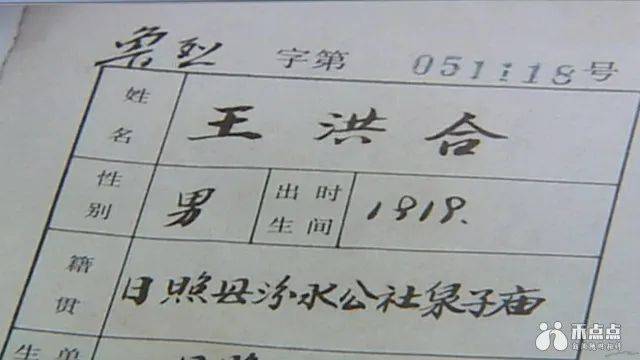 鲁烈 字第 051118号
姓名 王洪合
性别 男 出生时间 1919.
籍贯 日照县汾水公社泉子庙
禾点点